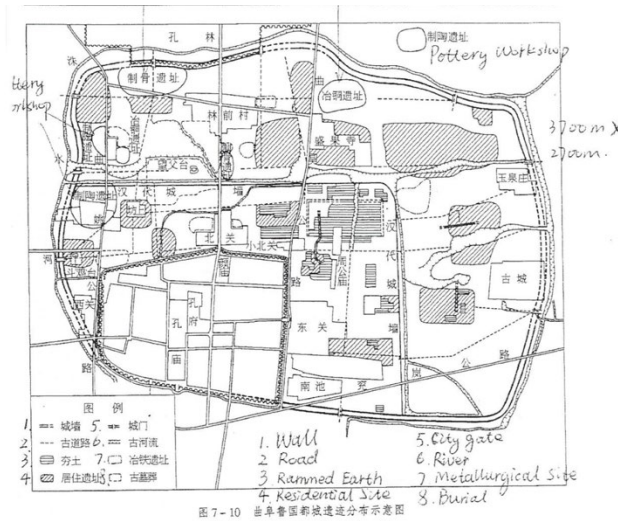 孔 林
制陶遗址
Pottery Workshop
洙
制骨遗址
曲
冶铜遗址
林前村
盛果寺
3700m X
2700m.
水
望父台
汉代城墙
玉泉庄
制陶遗址
北关
小北关
汉代城墙
河
斗鸡台
周公庙
古城
公
西关
孔府
路
孔庙
东关
公路
南池
兖
图 例
1. 城墙 5. 城门
2 古道路 6. 古河流
3 夯土 7. 冶铁遗址
4 居住遗址 8. 古墓葬
1. Wall
2 Road
3 Rammed Earth
4. Residential Site
5. City gate
6. River
7 Metallurgical Site
8. Burial
图7-10 曲阜鲁国都城遗迹分布示意图